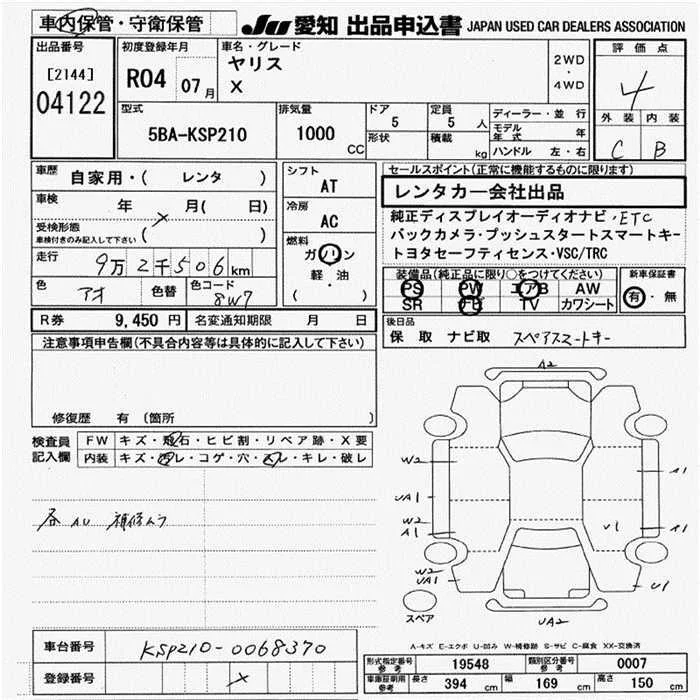 車内保管・守衛保管
JU 愛知 出品申込書 JAPAN USED CAR DEALERS ASSOCIATION
出品番号
[2144]
04122
初度登録年月
R04 07月
車名・グレード
ヤリス
X
2WD
・
4WD
評価点
4
外装 内装
C B
型式
5BA-KSP210
排気量
1000 CC
ドア
5
形状
定員
5 人
積載 kg
ディーラー・並行
モデル年式 年
ハンドル 左・右
車歴
自家用・( レンタ )
車検 年 月( 日)
受検形態
車検付きのみ記入して下さい ( )
走行
9万2千506km
色 アオ 色替 色コード 8W7
シフト
AT
冷房
AC
燃料
ガソリン
軽・油
( )
セールスポイント(正常に機能するものに限ります)
レンタカー会社出品
純正ディスプレイオーディオナビ・ETC
バックカメラ・プッシュスタートスマートキー
トヨタセーフティセンス・VSC/TRC
装備品(純正品に限り○をつけてください)
PS PW エアB AW
SR ナビ TV カワシート
新車保証書
有・無
R券 9,450円 名変通知期限 月 日
後日品
保 取 ナビ取 スペアスマートキー
注意事項申告欄(不具合内容等は具体的に記入して下さい)
修復歴 有 (箇所 )
検査員記入欄
FW キズ・飛石・ヒビ割・リペア跡・X要
内装 キズ・汚レ・コゲ・穴・スレ・キレ・破レ
各AU 補修ムラ
A2
W2
UA1
W2
A1
W2
UA1
A1
A1
U1
U1
UA2
スペア
A-キズ E-エクボ U-凹み W-補修跡 S-サビ C-腐食 XX-交換済
車台番号 KSP210-0068370
登録番号
型式指定番号参考 19548 類別区分番号参考 0007
車庫証明用参考 長さ 394 cm 幅 169 cm 高さ 150 cm